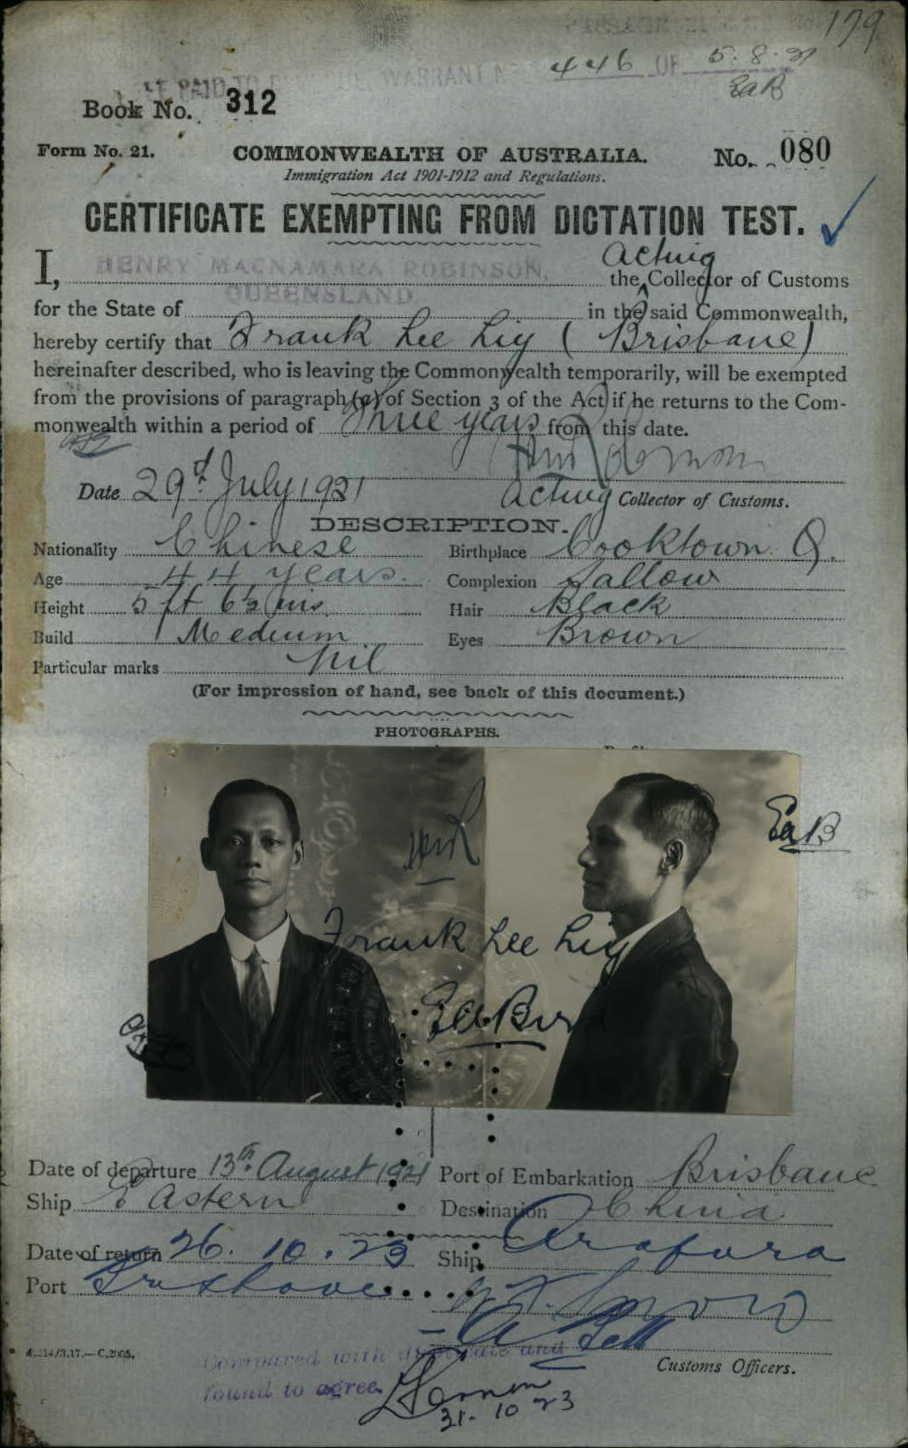 179
446 OF 5.8.21
EaB
Book No. 312
Form No. 21.
COMMONWEALTH OF AUSTRALIA.
No. 080
Immigration Act 1901-1912 and Regulations.
CERTIFICATE EXEMPTING FROM DICTATION TEST.
I, HENRY MACNAMARA ROBINSON, the Acting Collector of Customs
for the State of QUEENSLAND in the said Commonwealth,
hereby certify that Frank Lee Liy (Brisbane)
hereinafter described, who is leaving the Commonwealth temporarily, will be exempted
from the provisions of paragraph (a) of Section 3 of the Act if he returns to the Com-
monwealth within a period of Three years from this date.
Date 29th July 1921
Acting Collector of Customs.
DESCRIPTION.
Nationality Chinese Birthplace Cooktown Q.
Age 44 years. Complexion Sallow
Height 5 ft 6½ ins Hair Black
Build Medium Eyes Brown
Particular marks Nil
(For impression of hand, see back of this document.)
PHOTOGRAPHS.
HMR
EaB
Frank Lee Liy
Date of departure 13th August 1921 Port of Embarkation Brisbane
Ship Eastern Destination China
Date of return 26.10.23 Ship Arafura
Port Brisbane
Customs Officers.
Compared with duplicate and
found to agree.
31.10 23